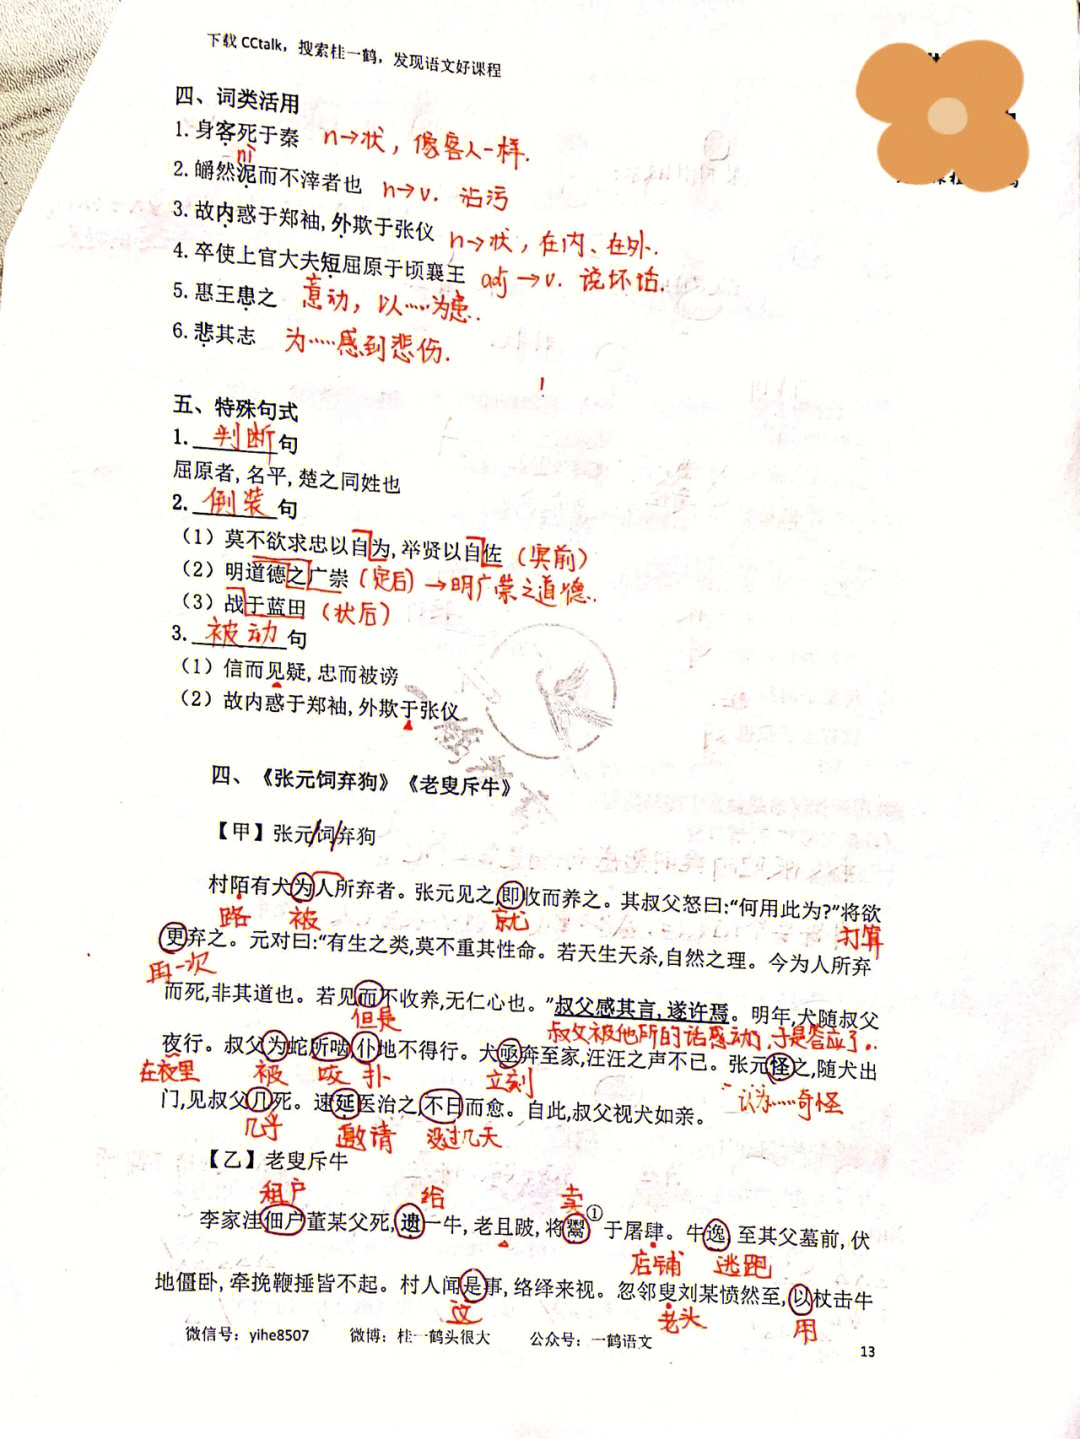 下载 CCtalk，搜索桂一鹤，发现语文好课程
四、词类活用
1. 身客死于秦 n→状，像客人一样.
nì
2. 皭然泥而不滓者也 n→v. 沾污
3. 故内惑于郑袖, 外欺于张仪 n→状，在内、在外.
4. 卒使上官大夫短屈原于顷襄王 adj→v. 说坏话.
5. 惠王患之 意动，以……为患..
6. 悲其志 为……感到悲伤.
五、特殊句式
1. 判断 句
屈原者, 名平, 楚之同姓也
2. 倒装 句
（1）莫不欲求忠以自为, 举贤以自佐（宾前）
（2）明道德之广崇（定后）→明广崇之道德..
（3）战于蓝田（状后）
3. 被动 句
（1）信而见疑, 忠而被谤
（2）故内惑于郑袖, 外欺于张仪
四、《张元饲弃狗》《老叟斥牛》
【甲】张元/饲/弃狗
村陌有犬为人所弃者。张元见之,即收而养之。其叔父怒曰:“何用此为?”将欲
路 被 就 打算
更弃之。元对曰:“有生之类,莫不重其性命。若天生天杀,自然之理。今为人所弃
再一次
而死,非其道也。若见而不收养,无仁心也。”叔父感其言,遂许焉。明年,犬随叔父
但是 叔父被他所的话感动了,于是答应了..
夜行。叔父为蛇所啮,仆地不得行。犬亟奔至家,汪汪之声不已。张元怪之,随犬出
在夜里 被 咬 扑 立刻 认为……奇怪
门,见叔父几死。速延医治之,不日而愈。自此,叔父视犬如亲。
几乎 邀请 没过几天
【乙】老叟斥牛
租户 给 卖
李家洼佃户董某父死,遗一牛, 老且跛, 将鬻① 于屠肆。牛逸, 至其父墓前, 伏
店铺 逃跑
地僵卧, 牵挽鞭捶皆不起。村人闻是事, 络绎来视。忽邻叟刘某愤然至, 以杖击牛
这 老头 用
微信号：yihe8507 微博：桂一鹤头很大 公众号：一鹤语文
13